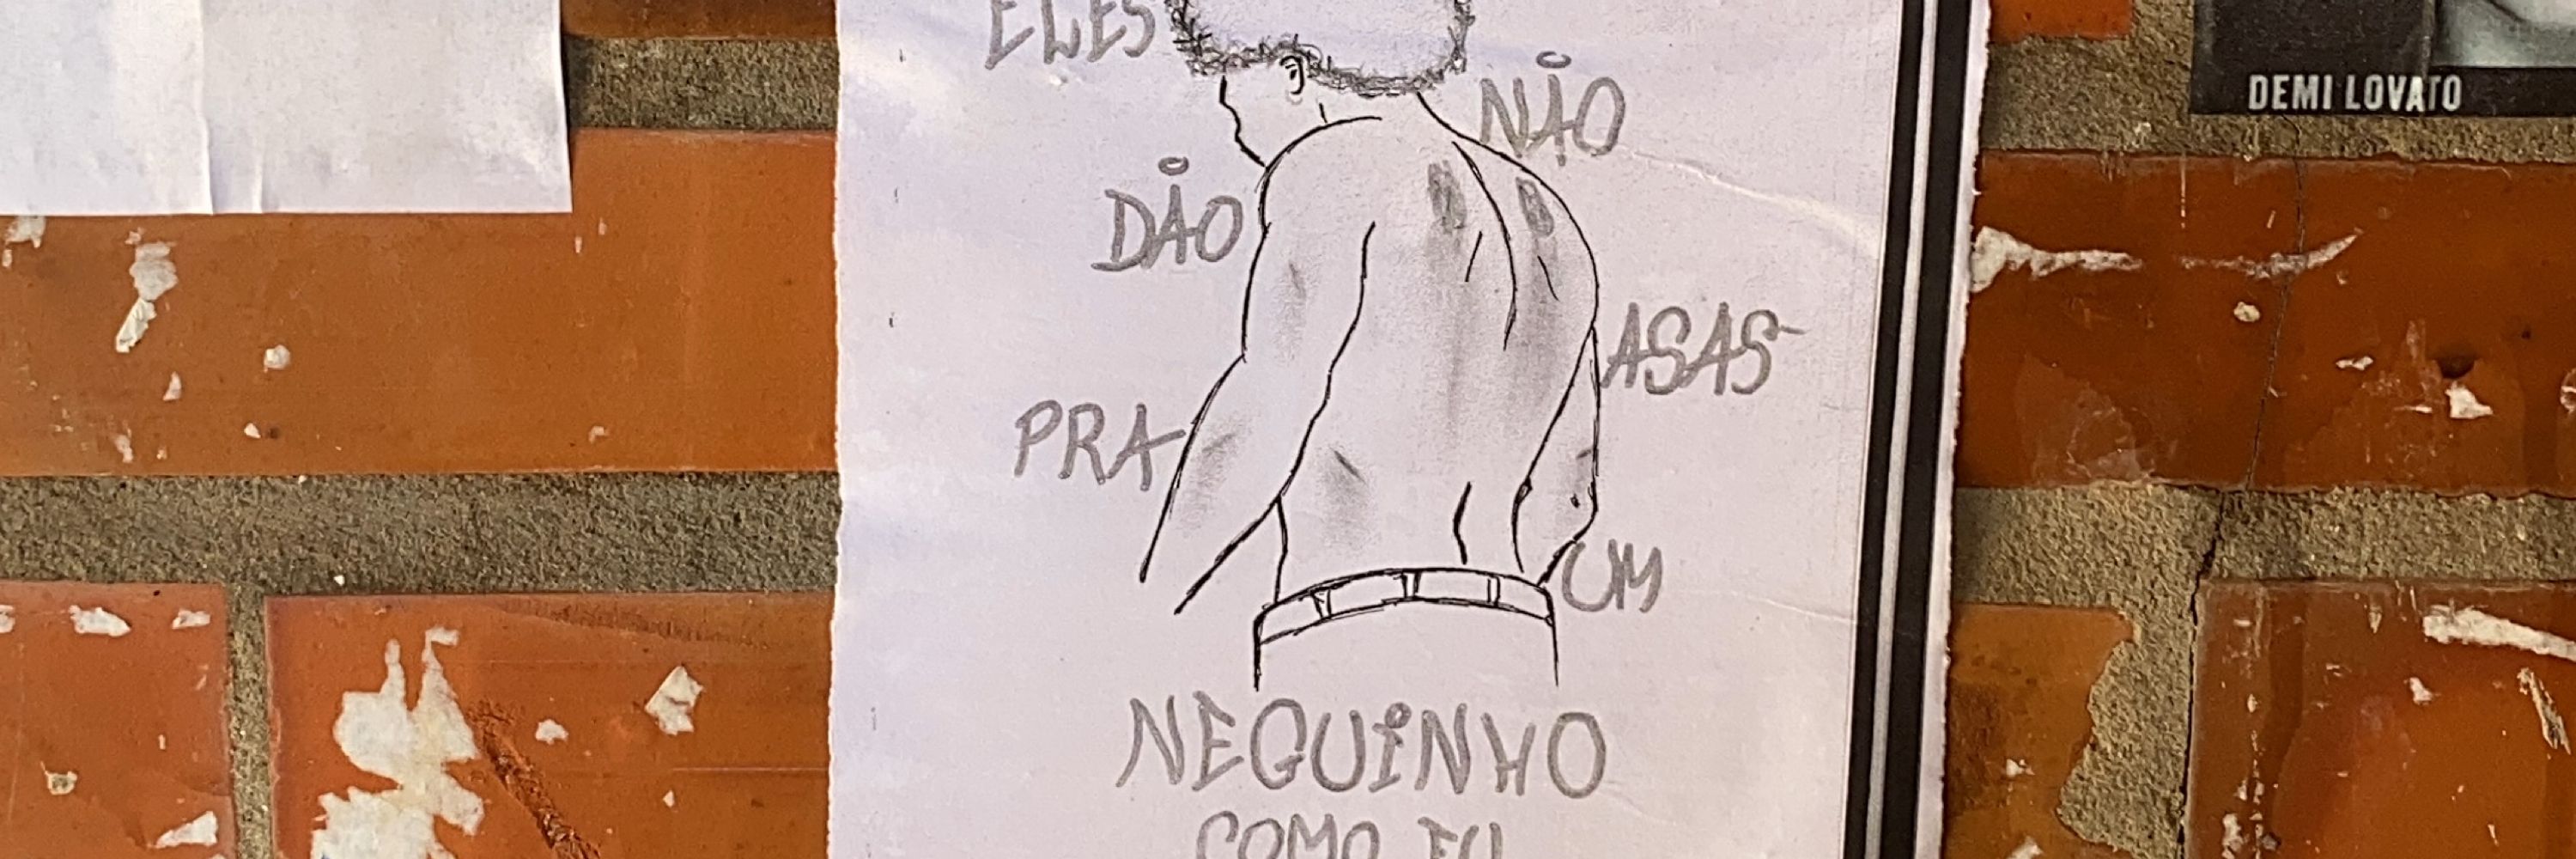 ELES
NÃO
DÃO
ASAS
PRA
UM
NEGUINHO
COMO EU
DEMI LOVATO